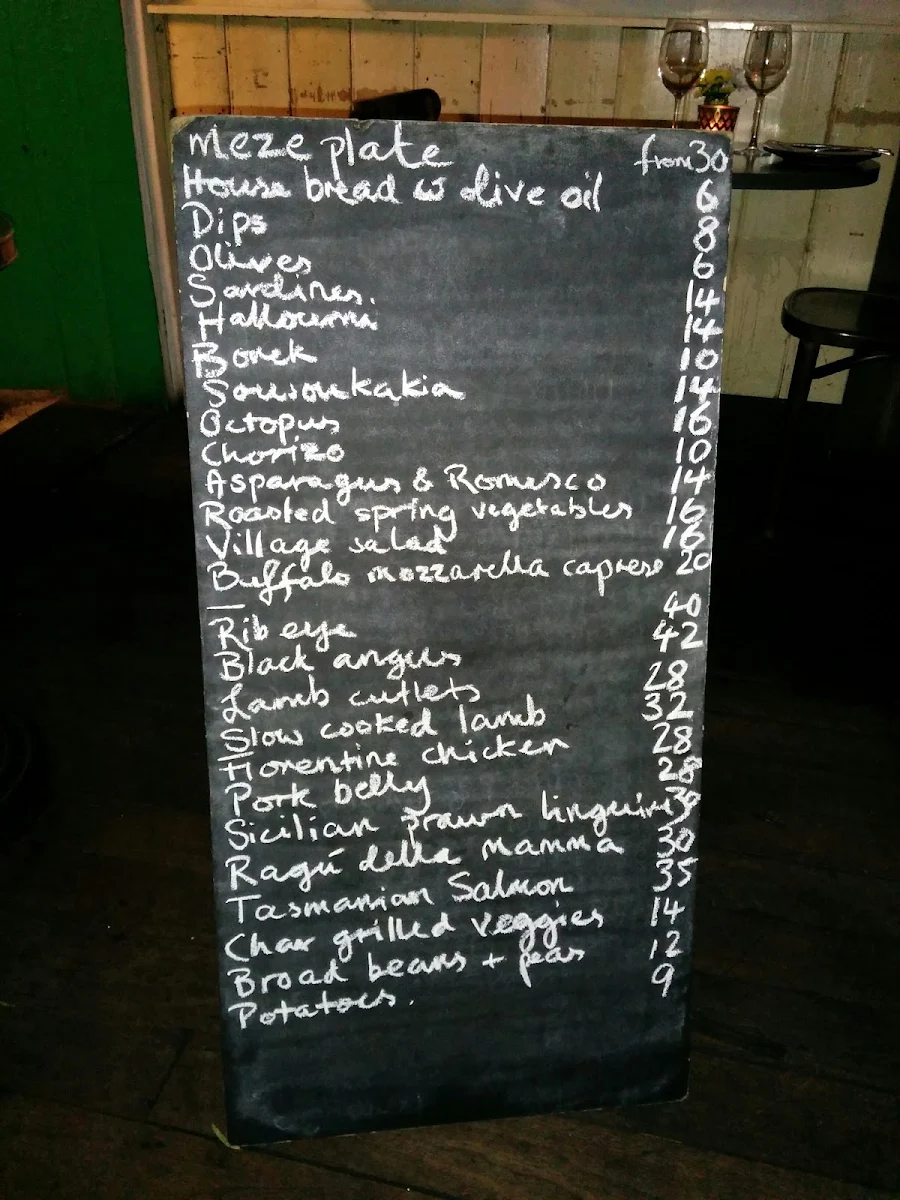 Meze plate from 30
House bread w olive oil 6
Dips 8
Olives 6
Sardines. 14
Halloumi 14
Borek 10
Sousoukakia 14
Octopus 16
Chorizo 10
Asparagus & Romesco 14
Roasted spring vegetables 16
Village salad 16
Buffalo mozzarella caprese 20
Rib eye 40
Black angus 42
Lamb cutlets 28
Slow cooked lamb 32
Florentine chicken 28
Pork belly 28
Sicilian prawn linguini
Ragú della mamma 30
Tasmanian Salmon 35
Char grilled veggies 14
Broad beans + peas 12
Potatoes. 9